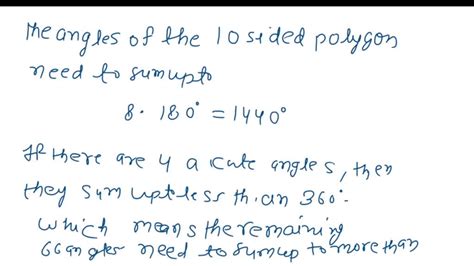 The angles of the 10 sided polygon
need to sum up to
8 · 180° = 1440°
If there are 4 acute angles, then
they sum upt less than 360°.
which means the remaining
6 6 angles need to sum up to more than